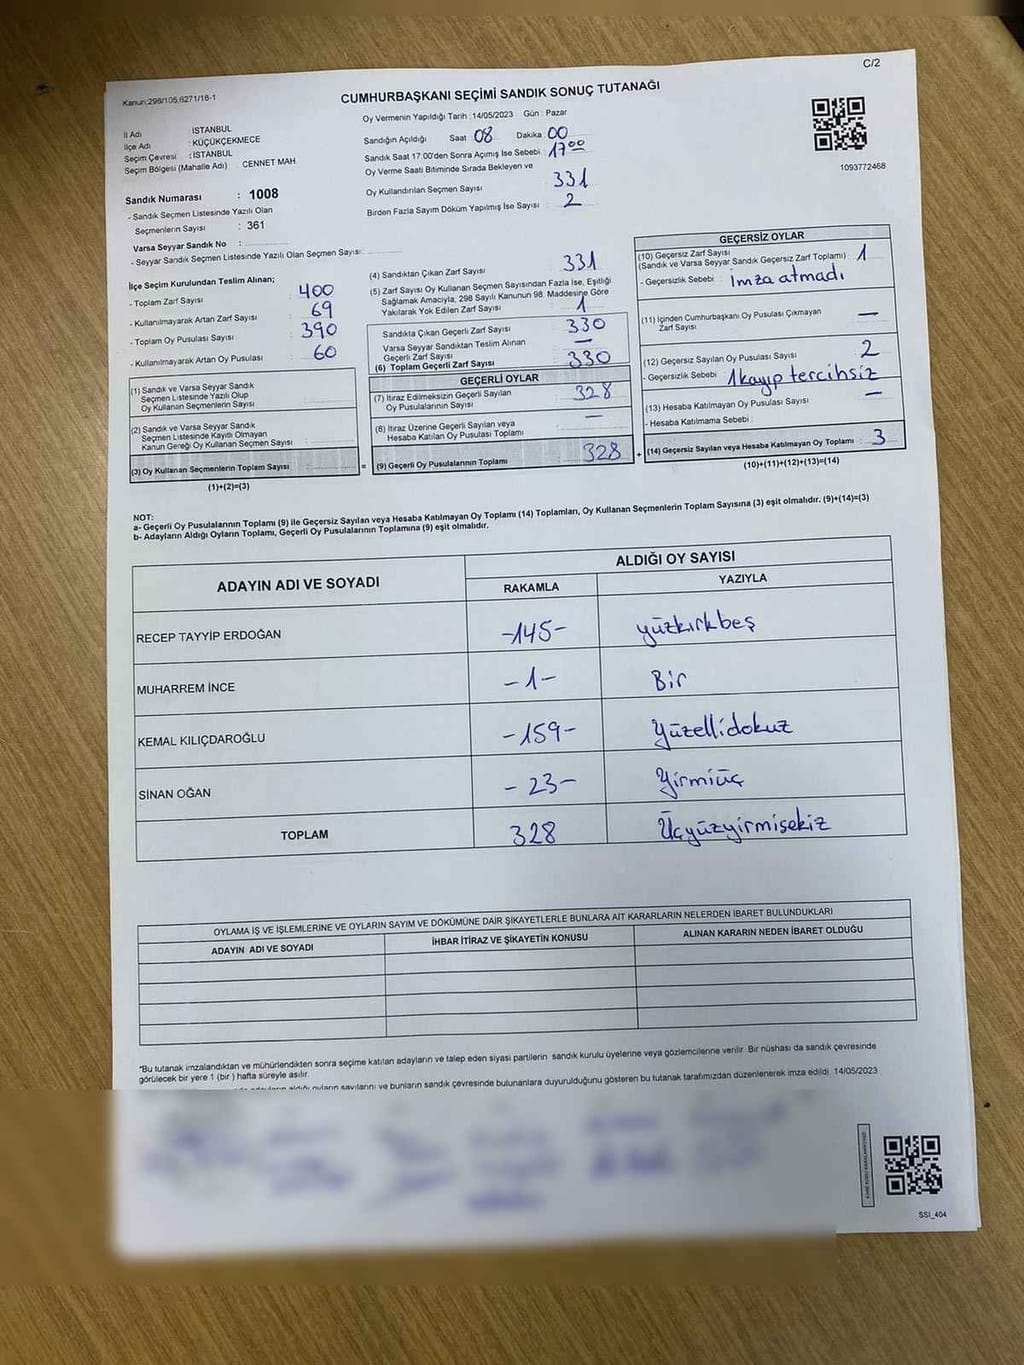 C/2
Kanun:298/105,6271/16-1
CUMHURBAŞKANI SEÇİMİ SANDIK SONUÇ TUTANAĞI
İl Adı : İSTANBUL
İlçe Adı : KÜÇÜKÇEKMECE
Seçim Çevresi : İSTANBUL
Seçim Bölgesi (Mahalle Adı) : CENNET MAH
Sandık Numarası : 1008
- Sandık Seçmen Listesinde Yazılı Olan
Seçmenlerin Sayısı : 361
Varsa Seyyar Sandık No :
- Seyyar Sandık Seçmen Listesinde Yazılı Olan Seçmen Sayısı:
Oy Vermenin Yapıldığı Tarih :14/05/2023 Gün : Pazar
Sandığın Açıldığı Saat 08 Dakika : 00
Sandık Saat 17 00'den Sonra Açımış İse Sebebi : 17 00
Oy Verme Saati Bitiminde Sırada Bekleyen ve
Oy Kullandırılan Seçmen Sayısı : 331
Birden Fazla Sayım Döküm Yapılmış İse Sayısı : 2
1093772468
İlçe Seçim Kurulundan Teslim Alınan;
- Toplam Zarf Sayısı : 400
- Kullanılmayarak Artan Zarf Sayısı : 69
- Toplam Oy Pusulası Sayısı : 390
- Kullanılmayarak Artan Oy Pusulası : 60
(1) Sandık ve Varsa Seyyar Sandık
Seçmen Listesinde Yazılı Olup
Oy Kullanan Seçmenlerin Sayısı
(2) Sandık ve Varsa Seyyar Sandık
Seçmen Listesinde Kayıtlı Olmayan
Kanun Gereği Oy Kullanan Seçmen Sayısı :
(3) Oy Kullanan Seçmenlerin Toplam Sayısı :
(1)+(2)=(3)
(4) Sandıktan Çıkan Zarf Sayısı : 331
(5) Zarf Sayısı Oy Kullanan Seçmen Sayısından Fazla İse, Eşitliği
Sağlamak Amacıyla, 298 Sayılı Kanunun 98. Maddesine Göre
Yakılarak Yok Edilen Zarf Sayısı : 1
Sandıkta Çıkan Geçerli Zarf Sayısı : 330
Varsa Seyyar Sandıktan Teslim Alınan
Geçerli Zarf Sayısı : —
(6) Toplam Geçerli Zarf Sayısı : 330
GEÇERLİ OYLAR
(7) İtiraz Edilmeksizin Geçerli Sayılan
Oy Pusulalarının Sayısı : 328
(8) İtiraz Üzerine Geçerli Sayılan veya
Hesaba Katılan Oy Pusulası Toplamı : —
= (9) Geçerli Oy Pusulalarının Toplamı : 328
GEÇERSİZ OYLAR
(10) Geçersiz Zarf Sayısı : 1
(Sandık ve Varsa Seyyar Sandık Geçersiz Zarf Toplamı)
- Geçersizlik Sebebi : İmza atmadı
(11) İçinden Cumhurbaşkanı Oy Pusulası Çıkmayan
Zarf Sayısı : —
(12) Geçersiz Sayılan Oy Pusulası Sayısı : 2
- Geçersizlik Sebebi : 1 kayıp tercihsiz
(13) Hesaba Katılmayan Oy Pusulası Sayısı : —
- Hesaba Katılmama Sebebi :
+ (14) Geçersiz Sayılan veya Hesaba Katılmayan Oy Toplamı : 3
(10)+(11)+(12)+(13)=(14)
NOT:
a- Geçerli Oy Pusulalarının Toplamı (9) ile Geçersiz Sayılan veya Hesaba Katılmayan Oy Toplamı (14) Toplamları, Oy Kullanan Seçmenlerin Toplam Sayısına (3) eşit olmalıdır. (9)+(14)=(3)
b- Adayların Aldığı Oyların Toplamı, Geçerli Oy Pusulalarının Toplamına (9) eşit olmalıdır.
ADAYIN ADI VE SOYADI
ALDIĞI OY SAYISI
RAKAMLA YAZIYLA
RECEP TAYYİP ERDOĞAN -145- yüzkırkbeş
MUHARREM İNCE -1- Bir
KEMAL KILIÇDAROĞLU -159- Yüzellidokuz
SİNAN OĞAN -23- Yirmiüç
TOPLAM 328 Üçyüzyirmisekiz
OYLAMA İŞ VE İŞLEMLERİNE VE OYLARIN SAYIM VE DÖKÜMÜNE DAİR ŞİKAYETLERLE BUNLARA AİT KARARLARIN NELERDEN İBARET BULUNDUKLARI
ADAYIN ADI VE SOYADI İHBAR İTİRAZ VE ŞİKAYETİN KONUSU ALINAN KARARIN NEDEN İBARET OLDUĞU
*Bu tutanak imzalandıktan ve mühürlendikten sonra seçime katılan adayların ve talep eden siyasi partilerin sandık kurulu üyelerine veya gözlemcilerine verilir. Bir nüshası da sandık çevresinde
görülecek bir yere 1 (bir ) hafta süreyle asılır.
aldığı oyların sayılarını ve bunların sandık çevresinde bulunanlara duyurulduğunu gösteren bu tutanak tarafımızdan düzenlenerek imza edildi. 14/05/2023
SSI_404